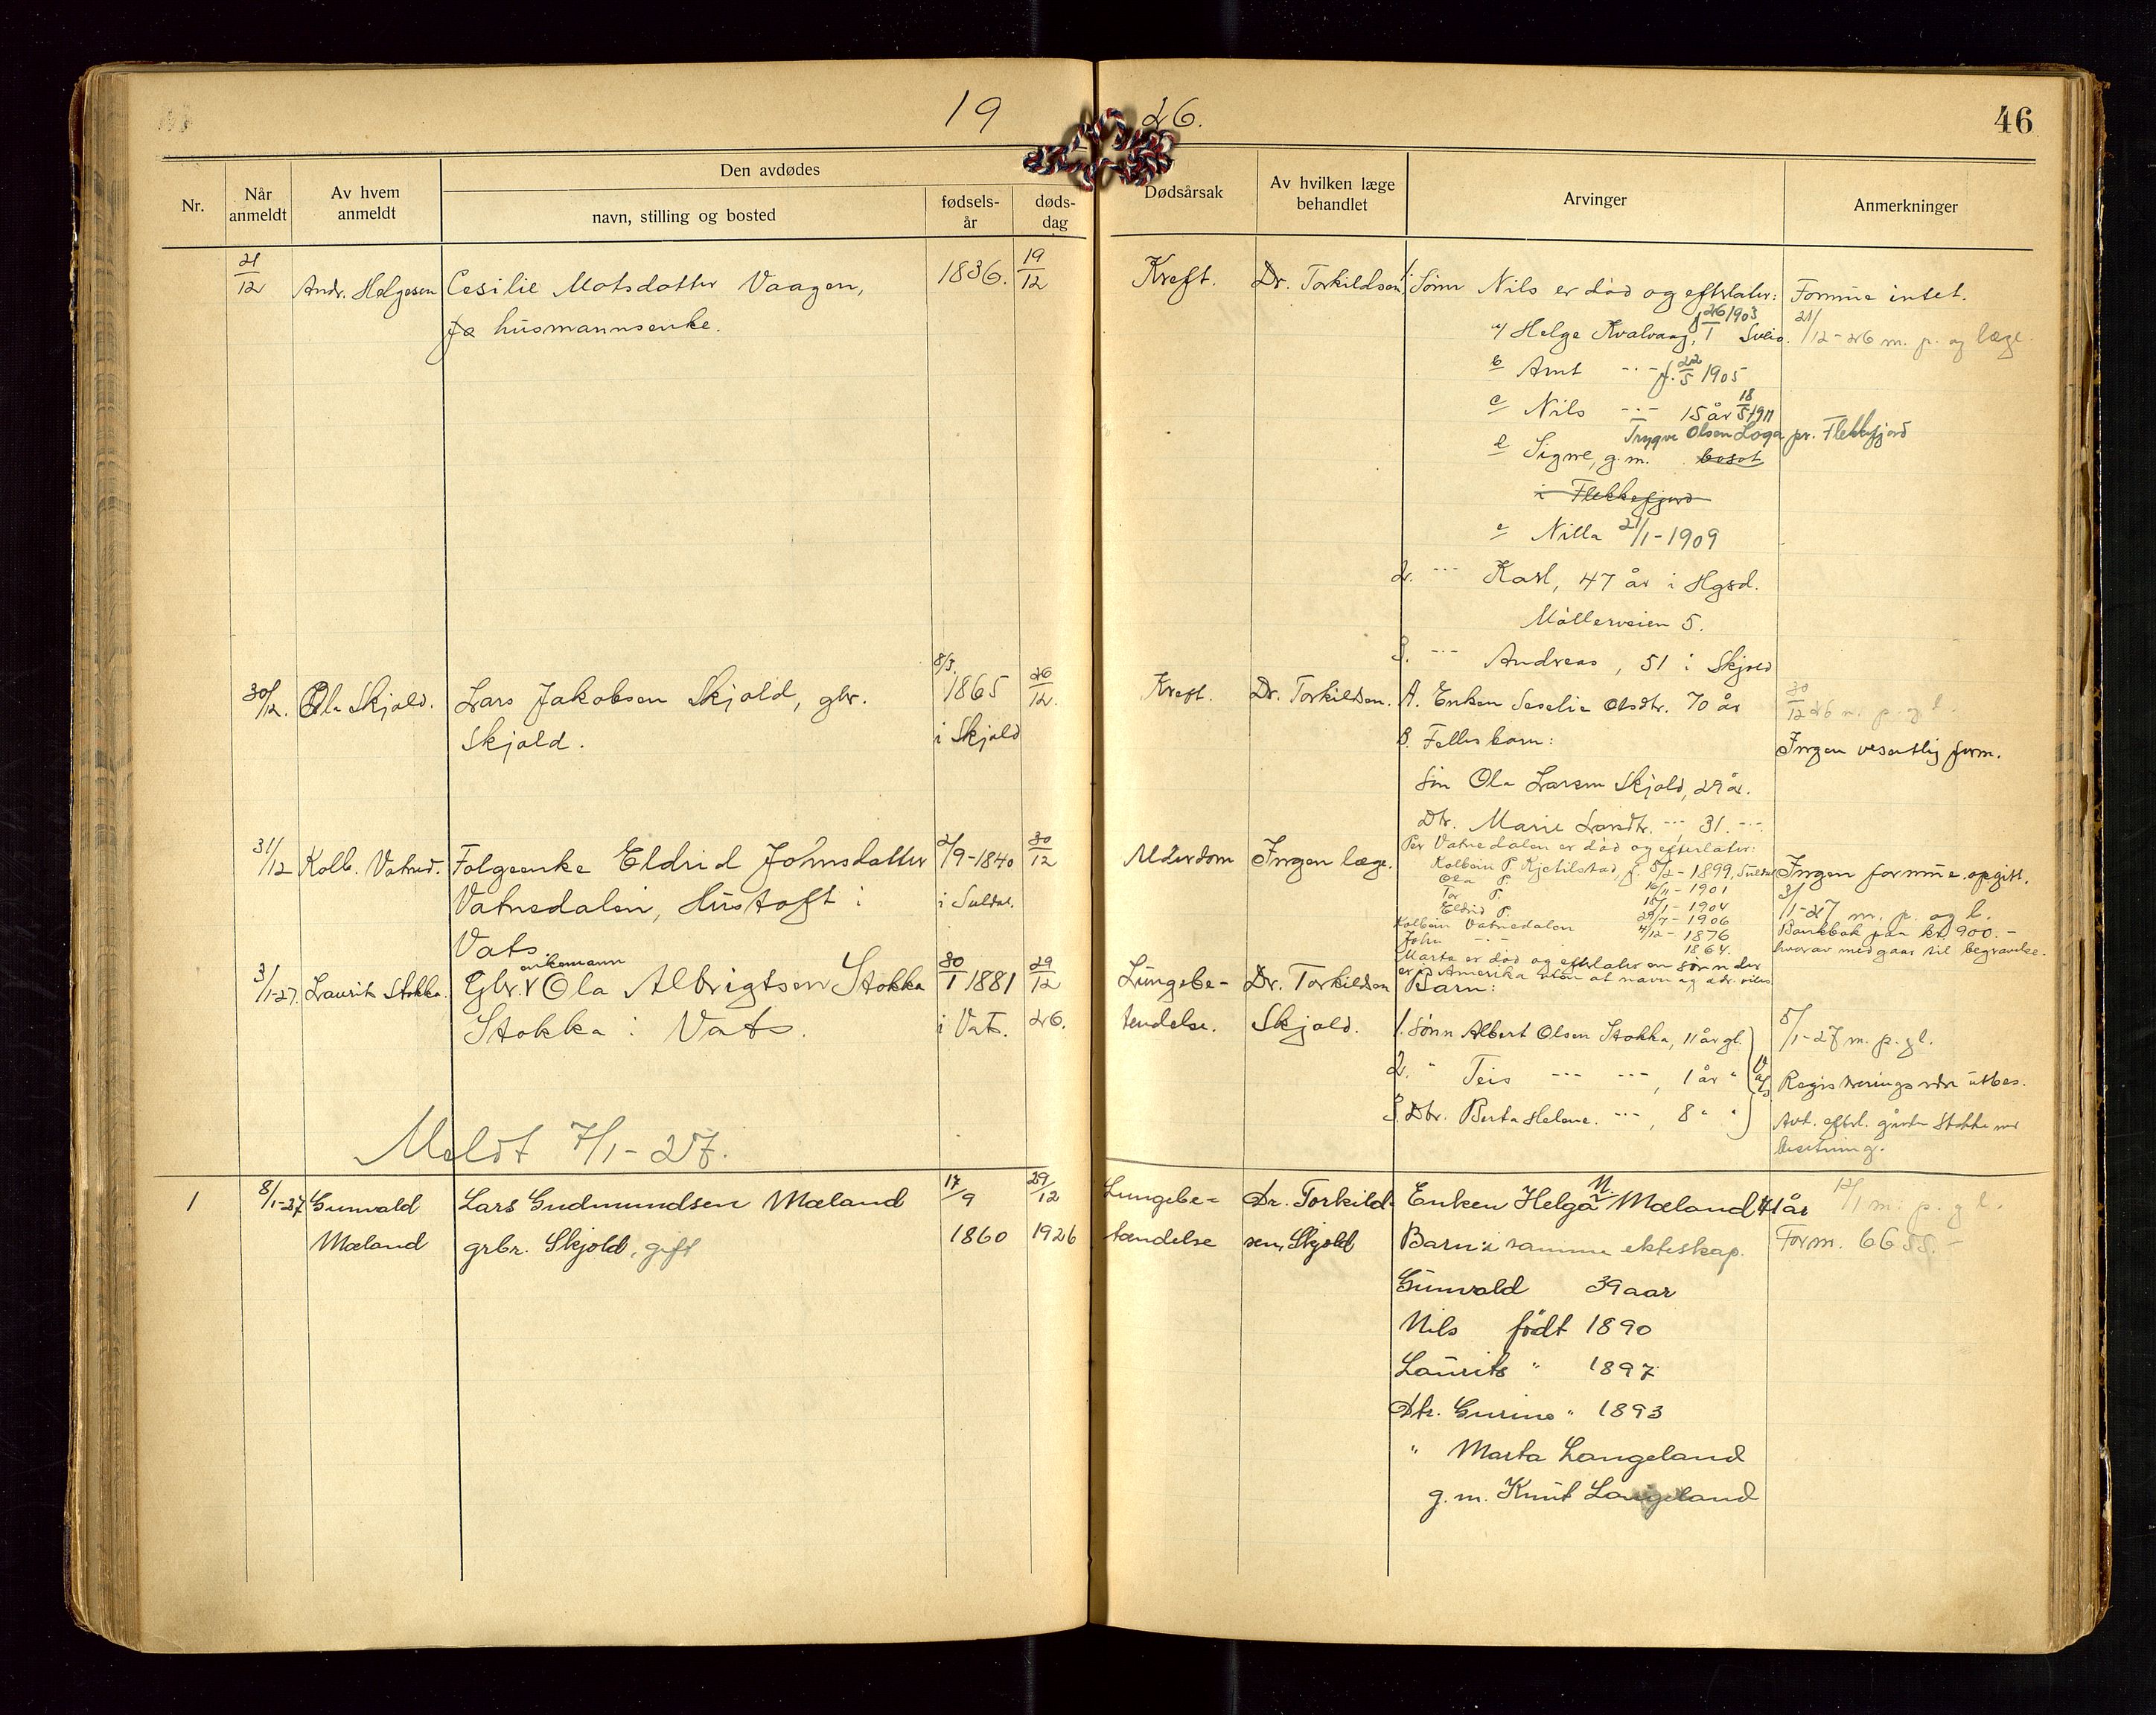 19 26.
46
Nr.
Når anmeldt
Av hvem anmeldt
Den avdødes
navn, stilling og bosted
fødsels-år
døds-dag
Dødsårsak
Av hvilken læge behandlet
Arvinger
Anmerkninger
21/12 Andr. Helgesen Cesilie Matsdatter Vaagen, 1836. 19/12 Kreft. Dr. Torkildsen 1. Sönn Nils er död og efterlater: Formue intet.
husmannsenke.
a/ Helge Kvalvaag, f 26/1 1903 Sveio. 21/12-26 m. p. og læge.
b Arnt -"- f. 22/5 1905
c Nils -"- 15 år 18/5 1911
Trygve Olsen Loga pr. Flekkefjord
d Signe, g.m. bosat
i Flekkefjord
e Nilla 21/1-1909
2. -"- Karl, 47 år i Hgsd.
Möllerveien 5.
3. -"- Andreas, 51 i Skjold
30/12. Ola Skjold. Lars Jakobsen Skjold, gbr. 8/3. 1865 26/12. Kreft. Dr. Torkildsen. A. Enken Seselie Olsdtr. 70 år 30/12 26 m. p. og l.
Skjold. i Skjold B. Fellesbarn: Ingen vesentlig form.
Sön Ola Larsen Skjold, 29 år.
Dtr. Marie Larsdtr. -"- 31. -"-
31/12 Kolb. Vatned. Folgeenke Eldrid Johnsdatter 2/9-1840 30/12 Alderdom Ingen læge. Per Vatnedalen er död og efterlater:
Kolbein P. Kjetilstad, f. 5/2-1899, Suldal Ingen formue opgitt.
Vatnedalen, Hustoft i i Suldal. Ola P. 16/11-1901
Tor P. 15/1-1904 3/1-27 m. p. og l.
Eldrid P. 29/7-1906
Vats Kolbein Vatnedalen 4/12-1876 Bankbok paa kr. 900.-
John -"- 1864. hvorav medgaar til begravelse.
Marta er död og efterlater en sönn der
er i Amerika uten at navn og adr. vites
3/1-27. Laurits Stokka. Gbr. enkemann Ola Albrigtsen Stokka 30/1 1881 29/12 Lungebe- Dr. Torkildsen Barn:
Stokka i Vats. i Vats. 26. tendelse. Skjold. 1. Sönn Albert Olsen Stokka, 11 år gl. 5/1-27 m. p. g l.
2. " Teis -"- -"-, 1 år " Vats Registrering utbes.
3. Dtr. Berta Helene. -"-, 8 " " Avd. efterl. gården Stokka med
besetning.
Meldt 7/1-27.
1 8/1-27 Gunvald Lars Gudmundsen Mæland 17/9 29/12 Lungebe- Dr. Torkild- Enken Helga N. Mæland 41 år 12/1 m. p. g l.
Mæland grbr. Skjold, gift 1860 1926 tændelse sen, Skjold Barn i samme ekteskap. Form. 6655.-
Gunvald 39 aar
Nils födt 1890
Laurits " 1897
Dtr. Gurine " 1893
" Marta Langeland
g.m. Knut Langeland